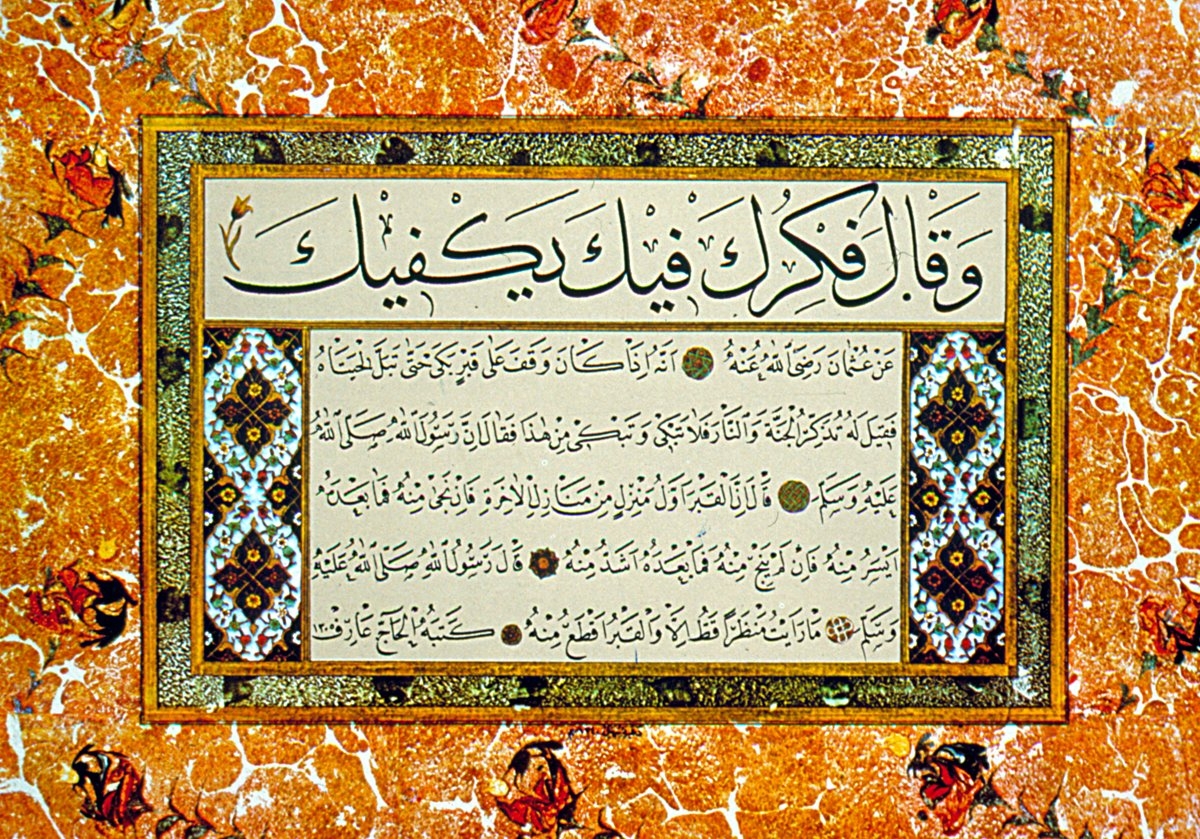 وَقَالَ فِكْرُكَ فِيْكَ يَكْفِيْكَ
عَنْ عُثْمَانَ رَضِيَ اللهُ عَنْهُ اَنَّهُ اِذَا كَانَ وَقَفَ عَلٰى قَبْرٍ بَكٰى حَتّٰى تَبَلَّ لِحْيَتَاهُ
فَقِيْلَ لَهُ تُذَكَّرُ الْجَنَّةَ وَالنَّارَ فَلَا تَبْكٰى وَتَبْكٰى مِنْ هٰذَا فَقَالَ اِنَّ رَسُولَ اللهِ صَلَّى اللهُ
عَلَيْهِ وَسَلَّمَ قَالَ اِنَّ الْقَبْرَ اَوَّلُ مَنْزِلٍ مِنْ مَنَازِلِ الْاٰخِرَةِ فَاِنْ نَجٰى مِنْهُ فَمَا بَعْدَهُ
اَيْسَرُ مِنْهُ فَاِنْ لَمْ يَنْجُ مِنْهُ فَمَا بَعْدَهُ اَشَدُّ مِنْهُ قَالَ رَسُولُ اللهِ صَلَّى اللهُ عَلَيْهِ
وَسَلَّمَ مَا رَاَيْتُ مَنْظَرًا قَطُّ اِلَّا وَالْقَبْرُ اَفْظَعُ مِنْهُ كَتَبَهُ الْحَاجّ عَارِف ١٣٠٥